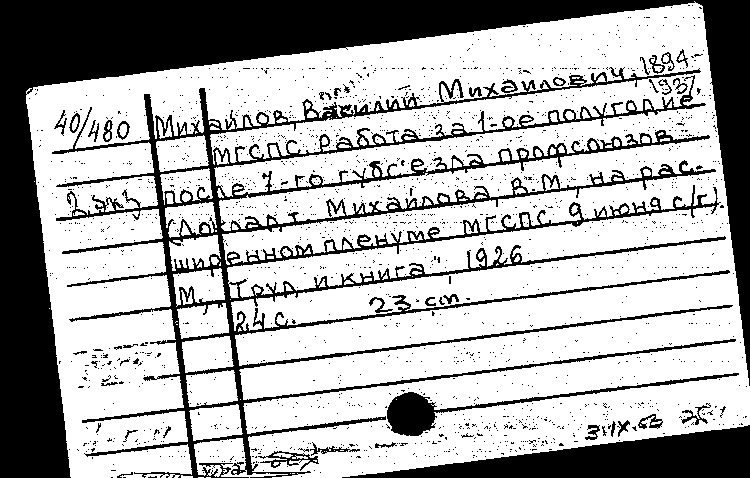 40/480 Михайлов, Василий Михайлович, 1894-
1937.
МГСПС. Работа за 1-ое полугодие
2 экз после 7-го губс'езда профсоюзов
(Доклад т. Михайлова, В.М., на рас-
ширенном пленуме МГСПС 9 июня с/г).
М., „Труд и книга", 1926
24 с. 23 cm.
3.IX.53